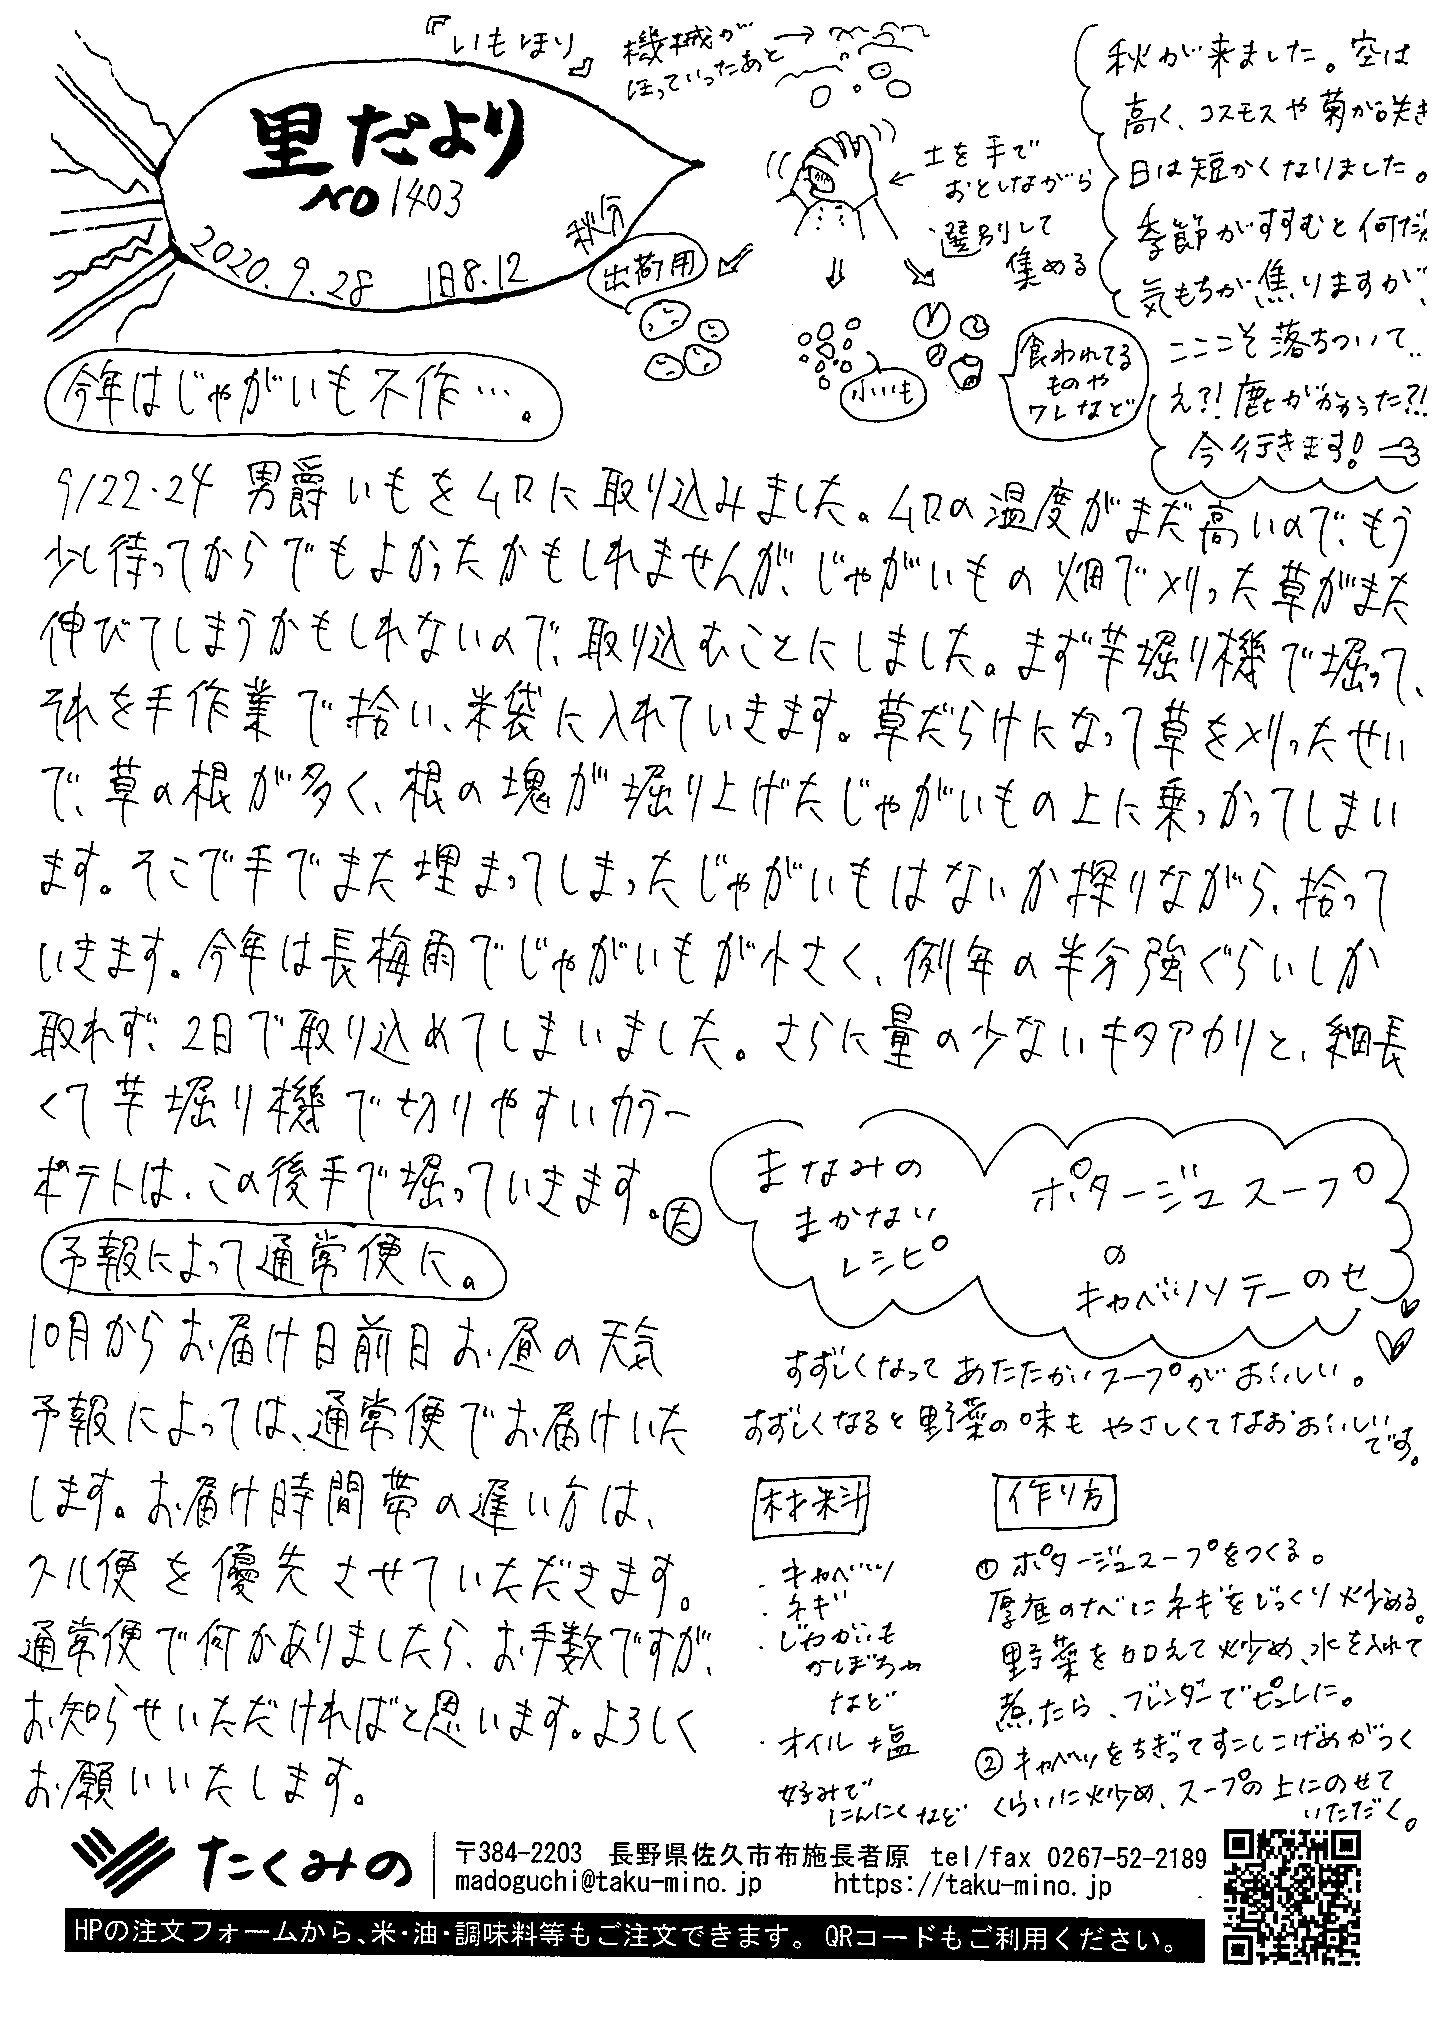 里だより
NO 1403
2020.9.28 旧8.12 秋分
『いもほり』
機械が
ほっていったあと→
←土を手で
おとしながら
選別して
集める
出荷用
小いも
食われてる
ものや
ワレなど
秋が来ました。空は
高く、コスモスや菊が咲き
日は短かくなりました。
季節がすすむと何だか
気もちが焦りますが、
こここそ落ちついて..
え?!鹿がかかった?!
今行きます!
今年はじゃがいも不作…。
9/22・24 男爵いもをムロに取り込みました。ムロの温度がまだ高いので、もう
少し待ってからでもよかったかもしれませんが、じゃがいもの畑で刈った草がまた
伸びてしまうかもしれないので、取り込むことにしました。まず芋堀り機で堀って、
それを手作業で拾い、米袋に入れていきます。草だらけになって草を刈ったせい
で、草の根が多く、根の塊が堀り上げたじゃがいもの上に乗っかってしまい
ます。そこで手でまた埋まってしまったじゃがいもはないか探りながら、拾って
いきます。今年は長梅雨でじゃがいもが小さく、例年の半分強ぐらいしか
取れず、2日で取り込めてしまいました。さらに量の少ないキタアカリと、細長
くて芋堀り機で切りやすいカラー
ポテトは、この後手で堀っていきます。㋟
予報によって通常便に。
10月からお届け日前日お昼の天気
予報によっては、通常便でお届けいた
します。お届け時間帯の遅い方は、
クール便を優先させていただきます。
通常便で何かありましたら、お手数ですが、
お知らせいただければと思います。よろしく
お願いいたします。
まなみの
まかない
レシピ
ポタージュスープ
の
キャベツソテーのせ
すずしくなってあたたかいスープがおいしい。
すずしくなると野菜の味もやさしくてなおおいしい
です。
材料
・キャベツ
・ネギ
・じゃがいも
かぼちゃ
など
・オイル 塩
好みで
にんにくなど
作り方
①ポタージュスープをつくる。
厚底のナベにネギをじっくり炒める。
野菜を加えて炒め、水を入れて
煮たら、ブレンダーでピュレに。
②キャベツをちぎってすこしこげめがつく
くらいに炒め、スープの上にのせて
いただく。
たくみの
〒384-2203 長野県佐久市布施長者原 tel/fax 0267-52-2189
madoguchi@taku-mino.jp https://taku-mino.jp
HPの注文フォームから、米・油・調味料等もご注文できます。QRコードもご利用ください。